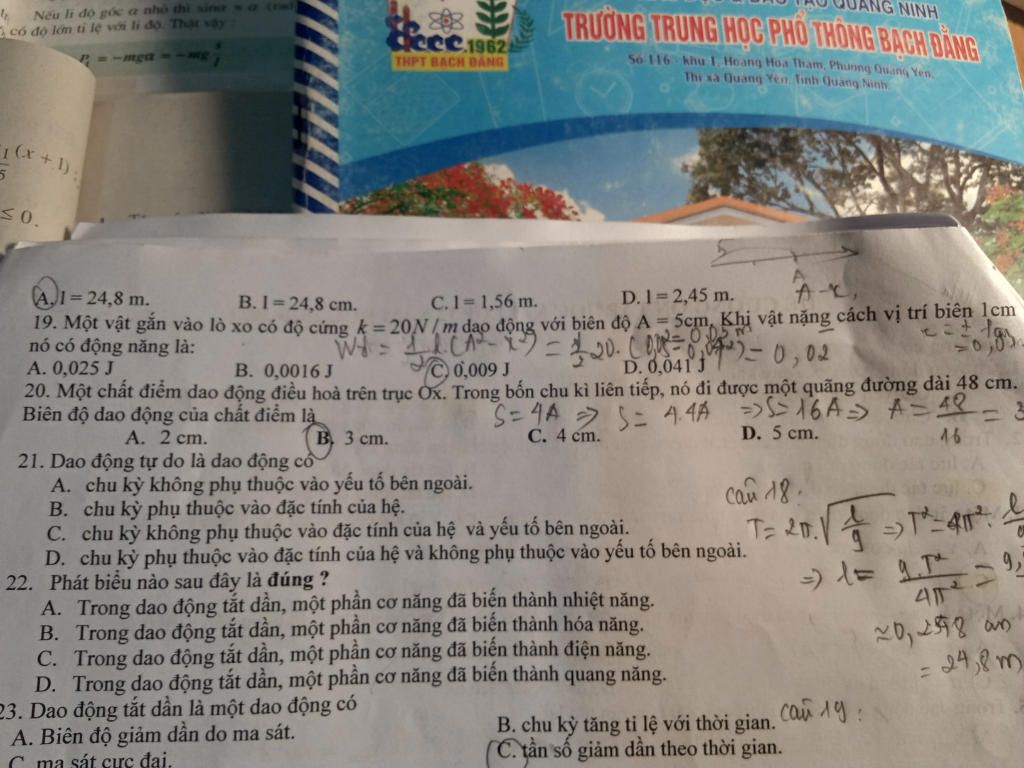 Nếu li độ góc α nhỏ thì sinα ≈ α (rad)
có độ lớn tỉ lệ với li độ. Thật vậy :
= −mgα = −mg s/l
1/5 (x + 1)
≤ 0.
1962
THPT BẠCH ĐẰNG
TẠO QUẢNG NINH
TRƯỜNG TRUNG HỌC PHỔ THÔNG BẠCH ĐẰNG
Số 116 - khu 1, Hoàng Hoa Thám, Phường Quảng Yên,
Thị xã Quảng Yên, Tỉnh Quảng Ninh
A
A - x
A. l = 24,8 m. B. l = 24,8 cm. C. l = 1,56 m. D. l = 2,45 m.
19. Một vật gắn vào lò xo có độ cứng k = 20N / m dao động với biên độ A = 5cm. Khi vật nặng cách vị trí biên 1cm
nó có động năng là:
Wđ = 1/2 k (A² - x²) = 1/2 20. (0,05² - 0,04²) = 0,02
A. 0,025 J B. 0,0016 J C. 0,009 J D. 0,041 J
20. Một chất điểm dao động điều hoà trên trục Ox. Trong bốn chu kì liên tiếp, nó đi được một quãng đường dài 48 cm.
Biên độ dao động của chất điểm là
S = 4A => S = 4.4A => S = 16A => A = 48/16 = 3
A. 2 cm. B. 3 cm. C. 4 cm. D. 5 cm.
21. Dao động tự do là dao động có
A. chu kỳ không phụ thuộc vào yếu tố bên ngoài.
B. chu kỳ phụ thuộc vào đặc tính của hệ.
C. chu kỳ không phụ thuộc vào đặc tính của hệ và yếu tố bên ngoài.
D. chu kỳ phụ thuộc vào đặc tính của hệ và không phụ thuộc vào yếu tố bên ngoài.
22. Phát biểu nào sau đây là đúng ?
A. Trong dao động tắt dần, một phần cơ năng đã biến thành nhiệt năng.
B. Trong dao động tắt dần, một phần cơ năng đã biến thành hóa năng.
C. Trong dao động tắt dần, một phần cơ năng đã biến thành điện năng.
D. Trong dao động tắt dần, một phần cơ năng đã biến thành quang năng.
câu 18:
T = 2π.√(l/g) => T² = 4π².
=> l = g.T²/4π² =
= 24,8 m
23. Dao động tắt dần là một dao động có
A. Biên độ giảm dần do ma sát. B. chu kỳ tăng tỉ lệ với thời gian.
câu 19:
C. ma sát cực đại. C. tần số giảm dần theo thời gian.